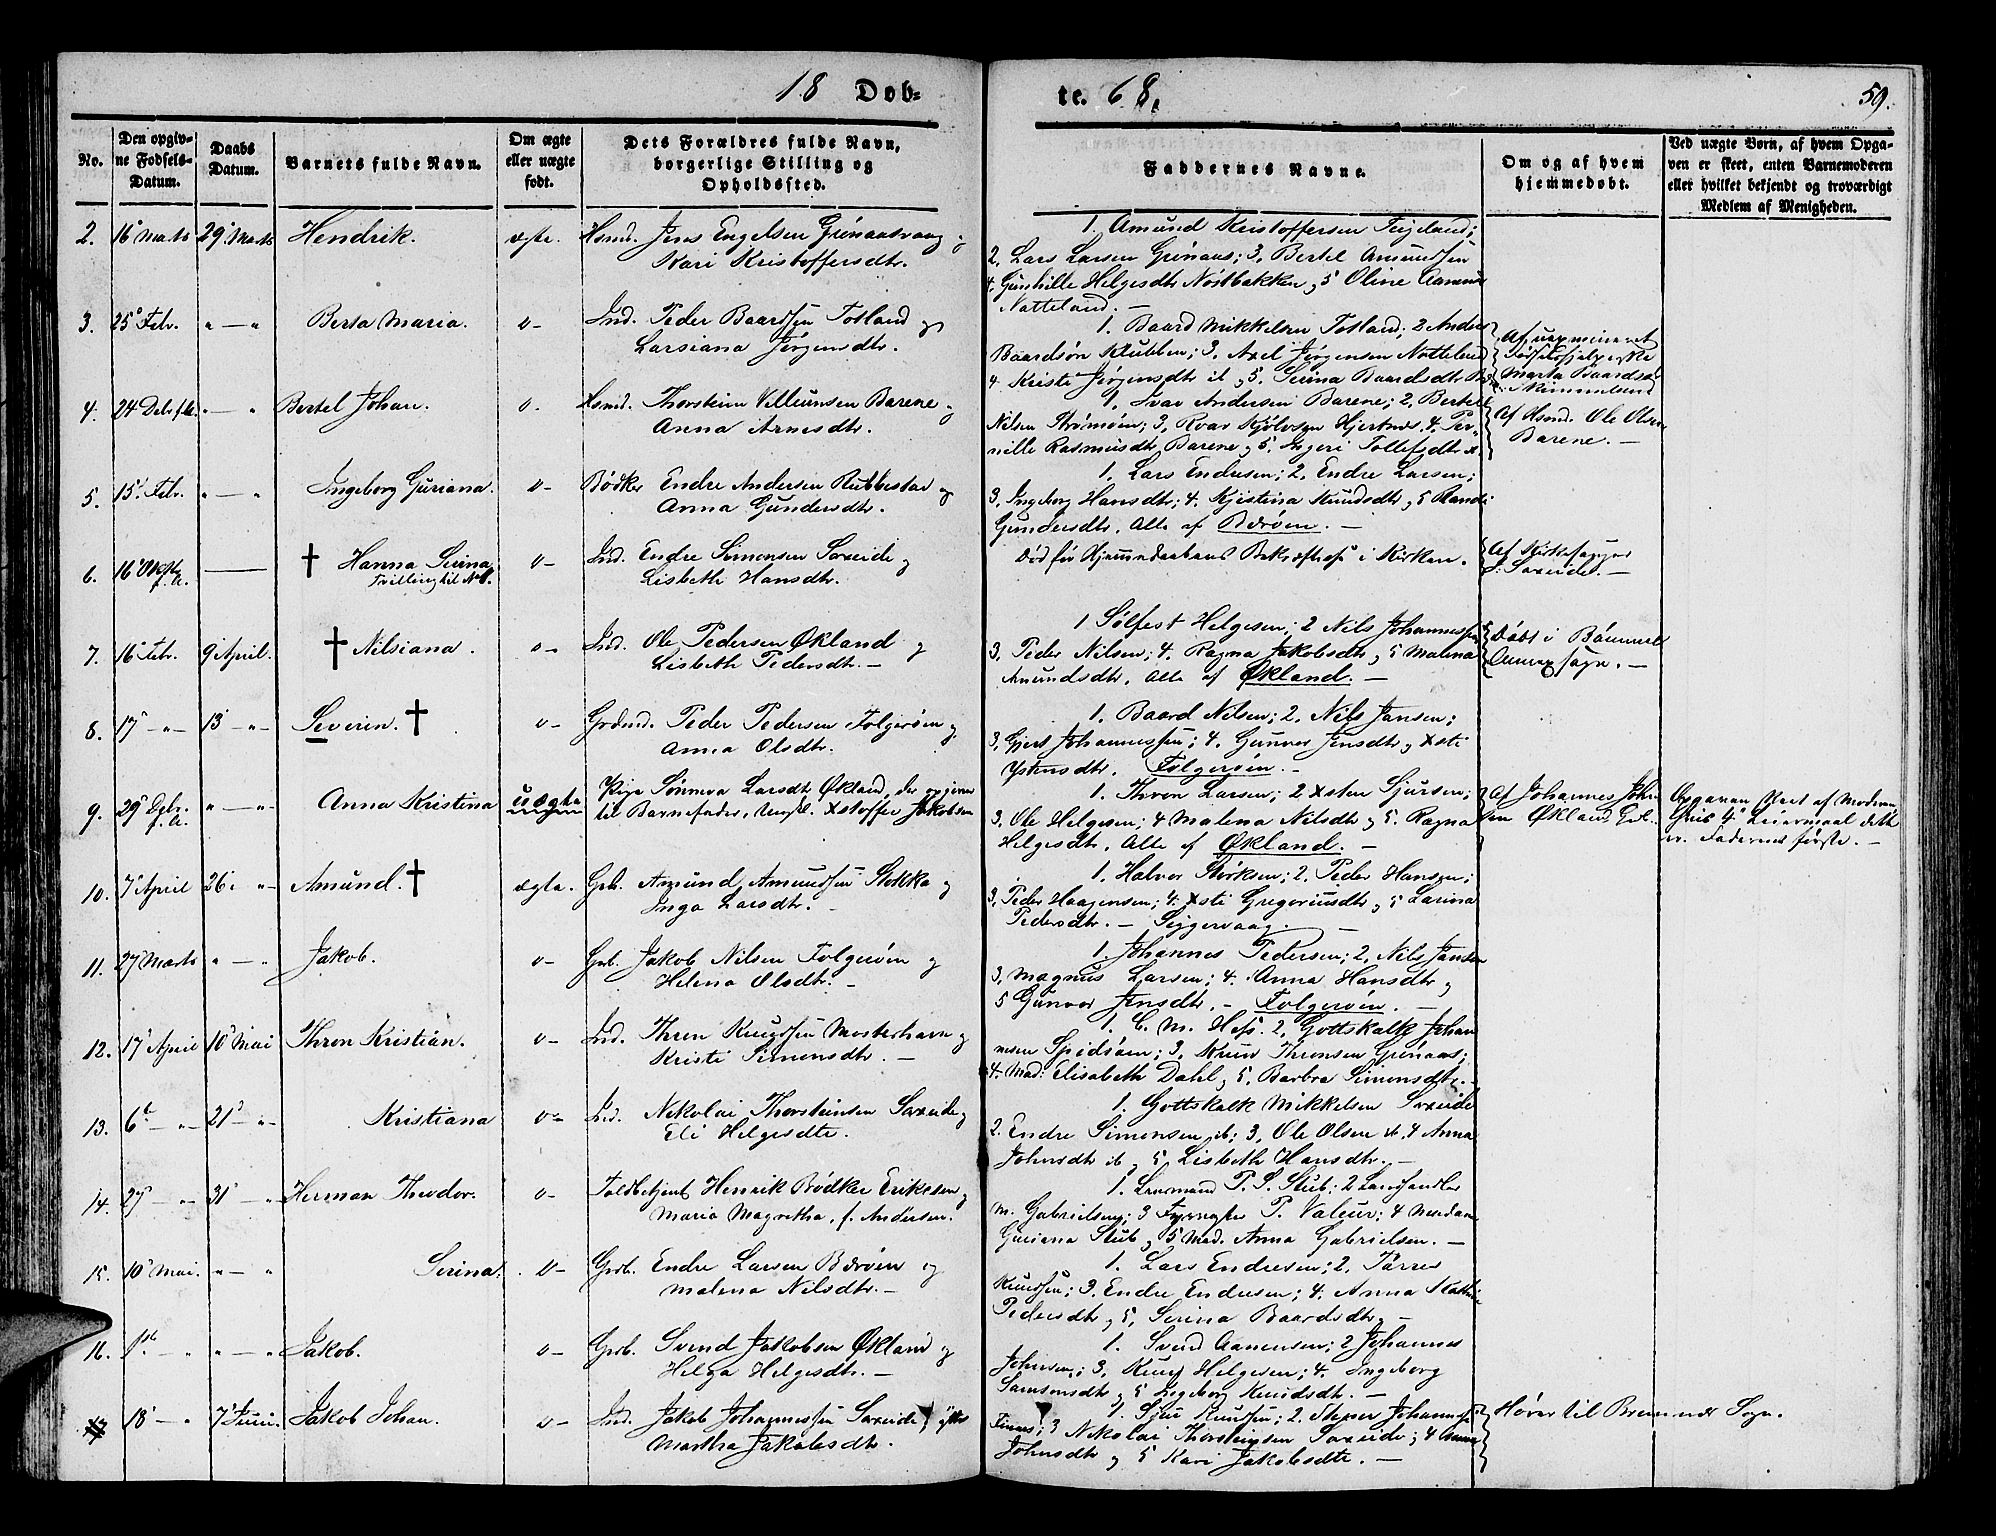 18 Døb-
te. 68.
59.
No.
Den opgiv-
ne Fødsels-
Datum.
Daabs
Datum.
Barnets fulde Navn.
Om ægte
eller uægte
født.
Dets Forældres fulde Navn,
borgerlige Stilling og
Opholdssted.
Faddernes Navne.
Om og af hvem
hjemmedøbt.
Ved uægte Børn, af hvem Opga-
ven er skeet, enten Barnemoderen
eller hvilket bekjendt og troværdigt
Medlem af Menigheden.
2. 16 Marts 29 Marts Hendrik. ægte. Hsmd. Jens Engelsen Grönaasvaag og
Kari Kristoffersdtr.
1. Amund Kristoffersen Feigeland;
2. Lars Larsen Grönaas; 3. Bertel Amundsen
4. Gunhille Helgesdtr Nöstbakken og 5 Oline
Natteland. —
3. 25 Febr. " — " Berta Maria. o — Ind. Peder Baardsen Totland og
Larsiana Jörgensdtr.
1. Baard Mikkelsen Totland; 2 Anders
Baardsön Klubben; 3. Axel Jörgensen Notteland
4 Kristi Jörgensdtr ib og 5. Serina Baardsdtr
Af uexamineret
Fødselshjelperske
Marta Baardsd
4. 24 Debr. " — " Bertel Johan. o. Hsmd. Thorstein Villumsen Barene og
Anna Arnesdtr.
1. Ivar Andersen Barene; 2. Bertel
Nilsen Strömöen; 3. Roar Kjölvsen Hjertnes. 4. Per-
nille Rasmusdtr Barene og 5. Ingeri Tollefsdtr
Af Hsmd. Ole Olsen
Barene. —
5. 15 Febr. " — " Ingeborg Guriana. o — Bödker Endre Andersen Rubbestad og
Anna Gundersdtr.
1. Lars Endresen; 2. Endre Larsen;
3. Ingeborg Hansdtr; 4. Kjistina Knudsdtr og 5 Randi
Gundersdtr. Alle af Börøen. —
6. 16 — † Hanna Serina, o — Ind. Endre Simonsen Saxeide og
Trilling til No 1. Lisbeth Hansdtr.
Död før Hjemmedaabens Bekræftelse i Kirken.
Af Kirkesanger
Saxeide. —
7. 16 Febr. 9 April. † Nilsiana. o — Ind. Ole Pedersen Økland og
Lisbeth Pedersdtr. —
1 Sölfest Helgesen; 2 Nils Johannessen
3. Peder Nilsen; 4. Ragna Jakobsdtr og 5 Malena
Amundsdtr. Alle af Økland. —
Döbt i Bömmel
Annexsogn. —
8. 17 — " — 13 — " — Severin. † o — Grdmd. Peder Pedersen Folgeröen og
Anna Olsdtr.
1. Baard Nilsen; 2. Nils Jansen;
3. Gjert Johannessen; 4. Gunvor Jensdtr og Xsti
Ystensdtr. Folgeröen. —
9. 29 " — " — Anna Kristina uægte Pige Sönneva Larsdt Økland, der opgiver
til Barnefader, Ungkl. Xstoffer Jakobsen
1. Thron Larsen; 2 Xsten Sjursen;
3. Ole Helgesen; 4 Malena Nilsdtr og 5. Ragna
Helgesdtr. Alle af Økland. —
Af Johannes Johan
sen Økland Grb.
Opgaven skeet af Moderen,
Grib 4 Leiermaal dette
er. Faderens første. —
10. 7 April 26 " — Amund. † ægte. Grb. Amund Amundsen Stokka og
Inga Larsdtr. —
1. Halvor Störksen; 2. Peder Hansen;
3. Peder Haagensen; 4. Xsti Gregoriusdtr og 5 Larina
Pedersdtr. — Siggervaag. —
11. 27 Marts " — " Jakob. o — Grb. Jakob Nilsen Folgeröen og
Helena Olsdtr. —
1. Johannes Pedersen; 2. Nils Jansen
3. Magnus Larsen; 4. Anna Hansdtr og
5 Gunvor Jensdtr. — Folgeröen. —
12. 17 April 10 Mai Thron Kristian. o — Ind. Thron Knudsen Mosterhavn og
Kristi Simonsdtr. —
1. C. M. Hess. 2. Gottskalk Johan
nesen Spidsöen; 3. Knud Thronsen Grönaas;
4. Mad: Elisabeth Dahl og 5. Barbra Simonsdtr. —
13. 6 — " — 21 — " — Kristiana o — Ind. Nikolai Thorsteinsen Saxeide og
Eli Helgesdtr.
1. Gottskalk Mikkelsen Saxeide
2. Endre Simonsen ib; 3. Ole Olsen ib. 4 Anna
Johnsdtr ib og 5 Lisbeth Hansdtr. —
14. 27 — " — 31 — " Herman Theodor. o — Toldbetjent Henrik Bödker Eriksen og
Maria Magretha, f. Andersen.
1. Lensmand P. S. Stub; 2 Landhandler
M. Gabrielsen; 3 Fyrvogter P. Valeur; 4 Madam
Guriana Stub og 5 Mad. Anna Gabrielsen. —
15. 10 Mai. " — " Serina. o — Grb. Endre Larsen Börøen og
Malena Nilsdtr. —
1. Lars Endresen; 2. Törres
Knudsen; 3. Endre Endresen; 4. Anna Kathrine
Pedersdtr og 5. Serina Baardsdtr —
16. 1 — " " — " Jakob. o — Grb. Svend Jakobsen Økland og
Helga Helgesdtr. —
1. Svend Aamensen; 2 Johannes
Johnsen; 3. Knud Helgesen; 4. Ingeborg
Samsonsdtr og 5 Ingeborg Knudsdtr. —
17 18 — " 7 Juni. Jakob Johan. o — Ind. Jakob Johannessen Saxeide, og
Martha Jakobsdtr.
1. Sjur Knudsen; 2. Johannes
Finnes; 3 Nikolai Thorsteinsen Saxeide; 4 Anna
Johnsdtr og 5 Kari Jakobsdtr. —
Hører til Bremnes Sogn.